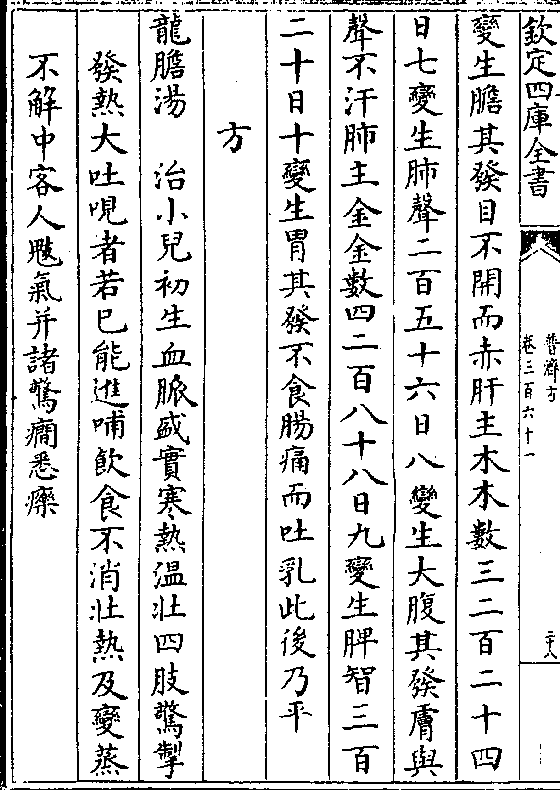 欽定四庫全書
普濟方
卷三百六十一
二十八
變生膽其發目不開而赤肝主木木數三二百二十四
日七變生肺聲二百五十六日八變生大腹其發膚與
聲不汗肺主金金數四二百八十八日九變生脾智三百
二十日十變生胃其發不食腸痛而吐乳此後乃平
方
龍膽湯　治小兒初生血脈盛實寒熱温壯四肢驚掣
發熱大吐哯者若已能進哺飲食不消壯熱及變蒸
不解中客人鬾氣并諸驚癎悉療